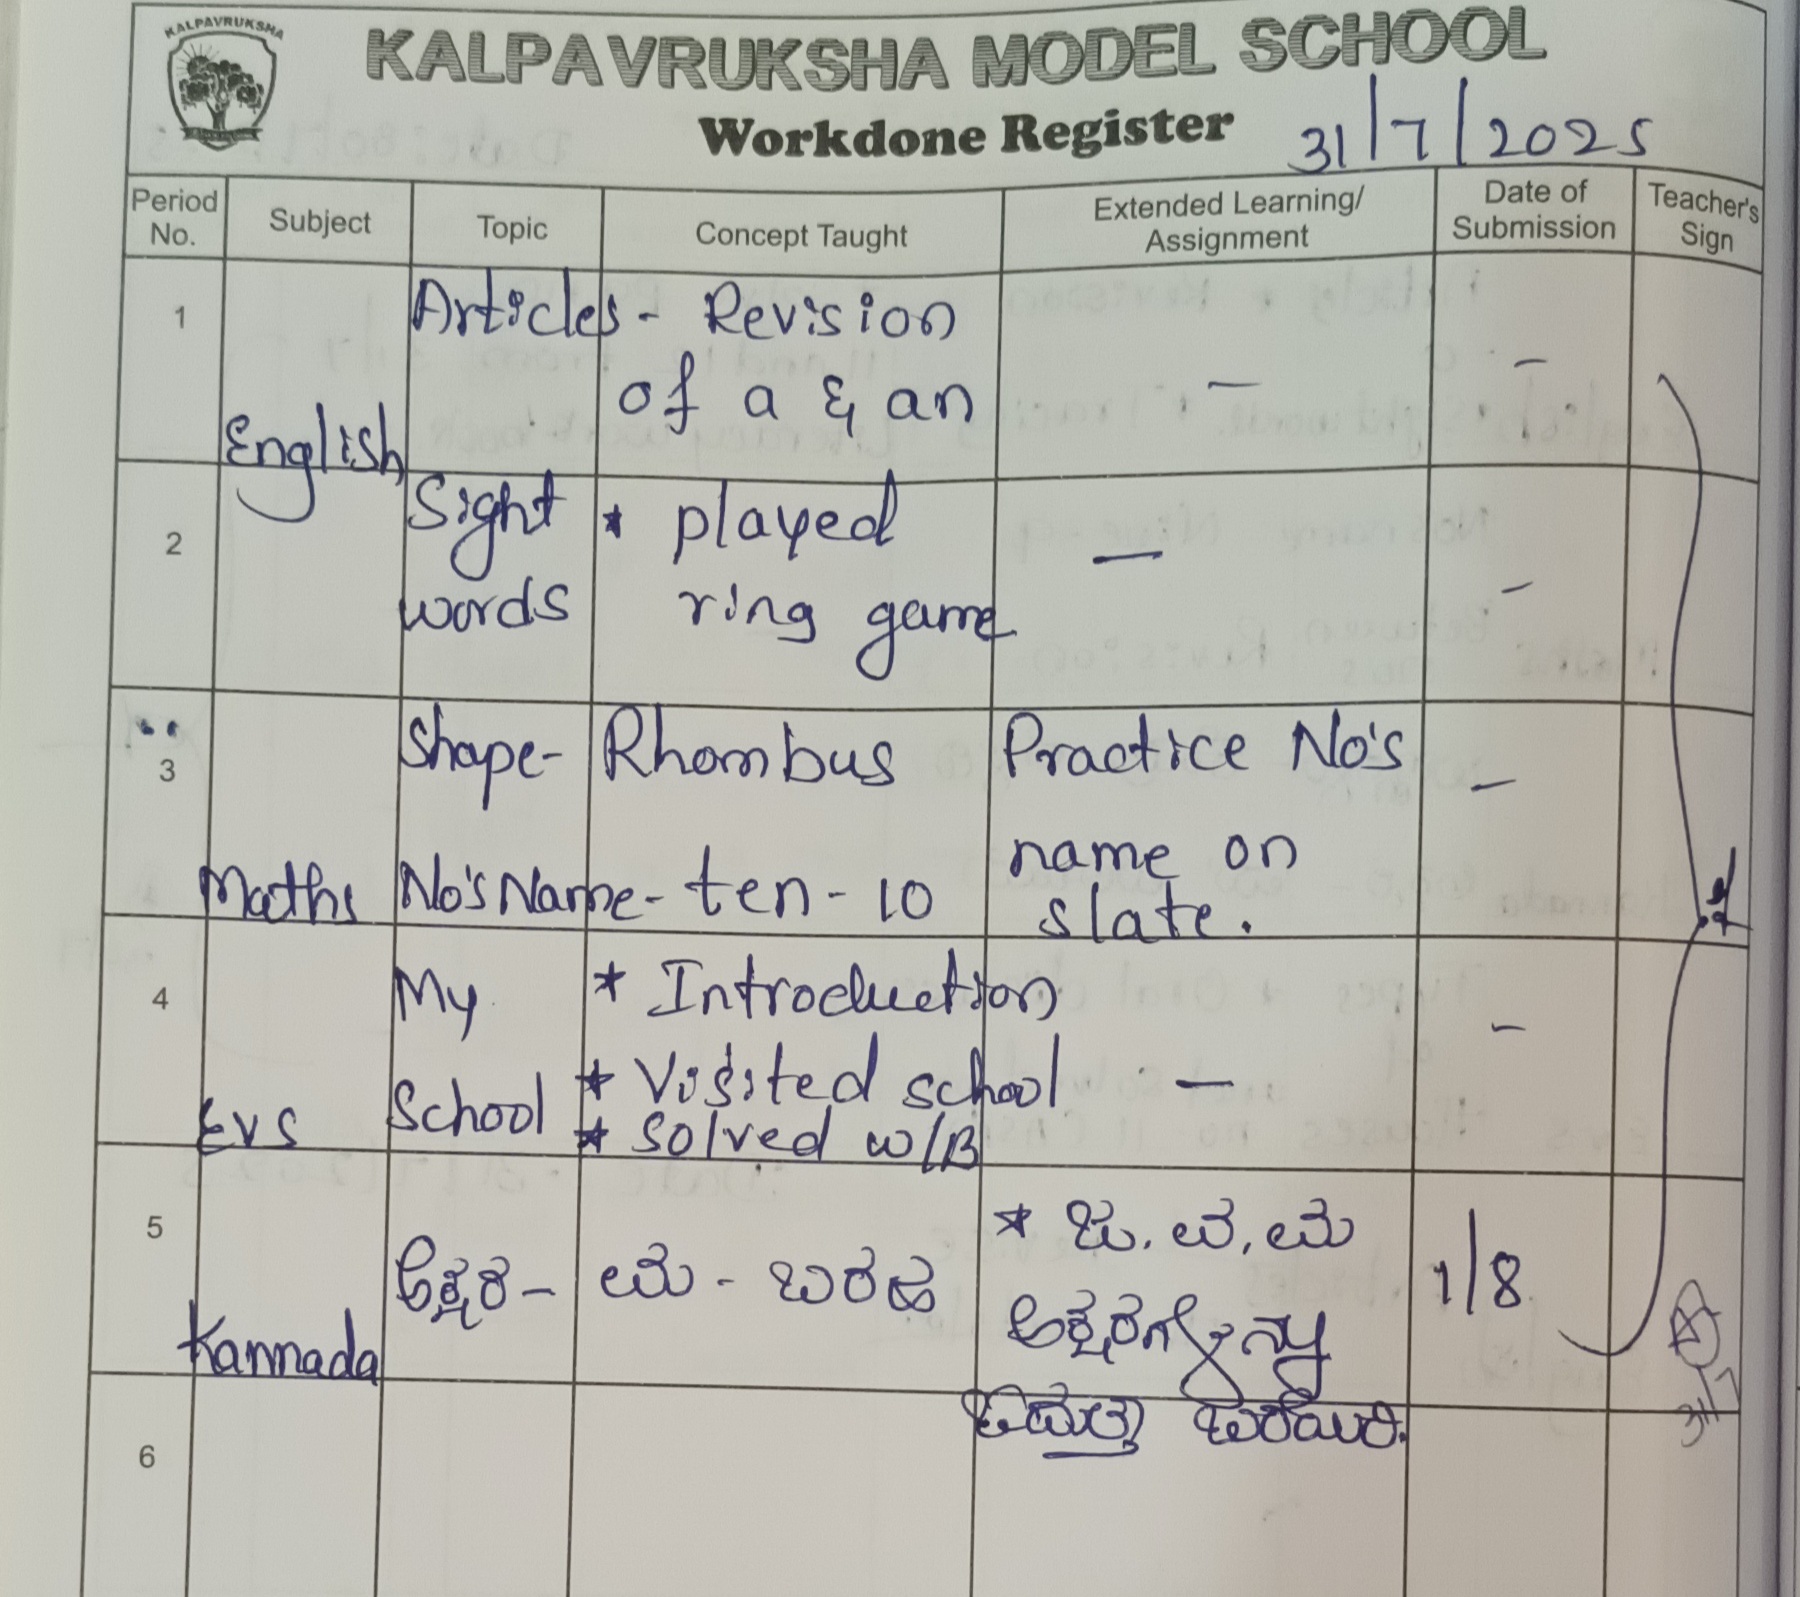 KALPAVRUKSHA
KALPAVRUKSHA MODEL SCHOOL
Workdone Register 31/7/2025
Period No. Subject Topic Concept Taught Extended Learning/ Assignment Date of Submission Teacher's Sign
1 Articles - Revision
of a & an - -
English
2 Sight * played
words ring game - -
3 Shape - Rhombus Practice No's -
name on
Maths No's Name - ten - 10
slate.
4 My * Introduction -
School * Visited school -
EVS * Solved W/B
5 * ಜ. ವ, ಮ
ಅಕ್ಷರ - ಮ - ಬರಹ 1/8
ಅಕ್ಷರಗಳನ್ನು
Kannada
ಬರೆಯಿರಿ.
31/7
6